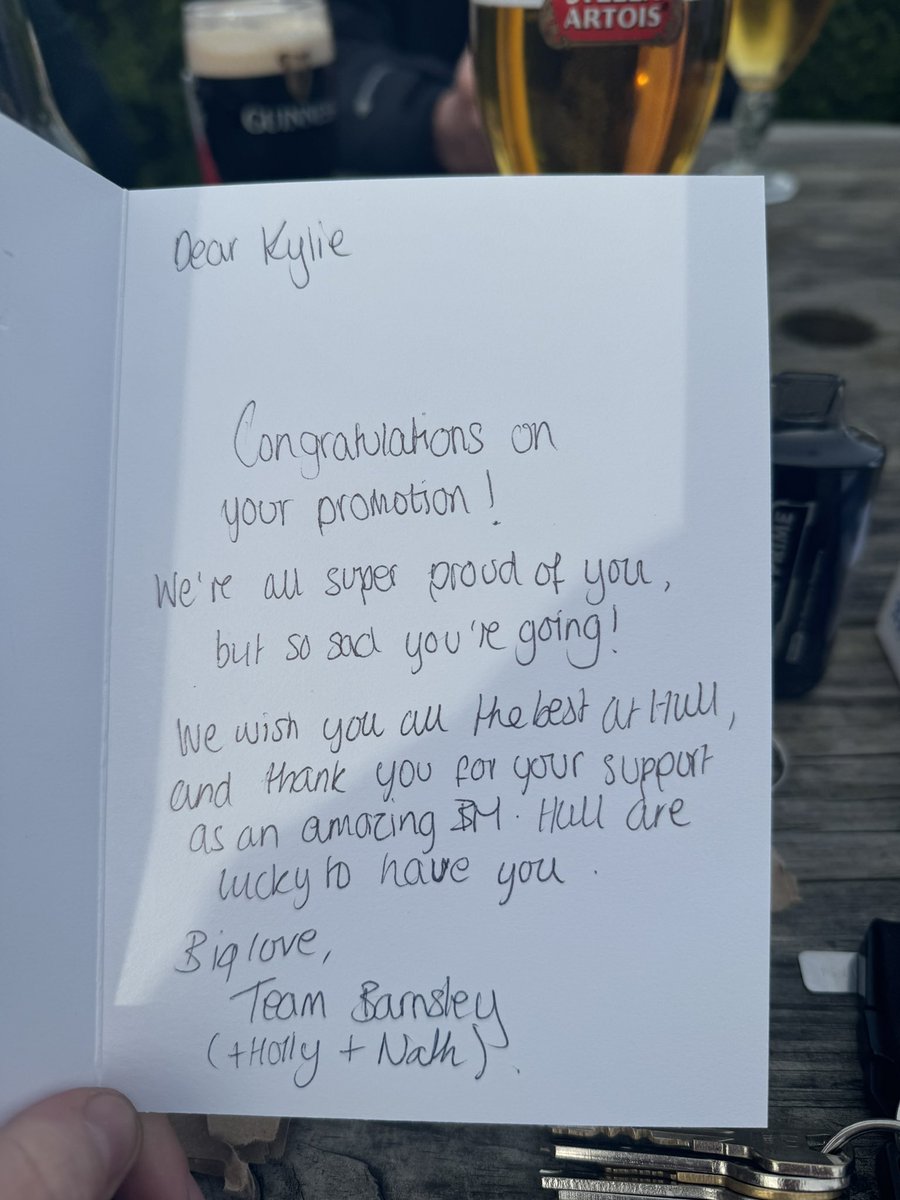 GUINNESS
STELLA
ARTOIS
Dear Kylie
Congratulations on
your promotion!
We're all super proud of you,
but so sad you're going!
We wish you all the best at Hull,
and thank you for your support
as an amazing BM. Hull are
lucky to have you.
Big love,
Team Barnsley
(+Holly + Nath).